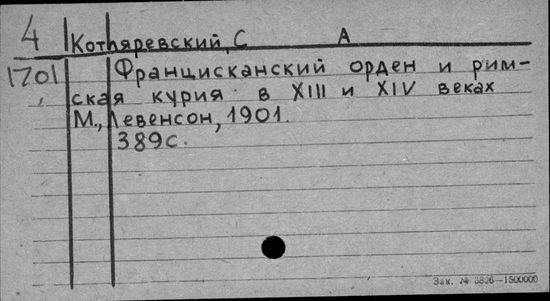 4 Котляревский, С А
1701 Францисканский орден и рим-
ская курия в XIII и XIV веках
М., Левенсон, 1901.
389с.
Зак. № 3826—1500000